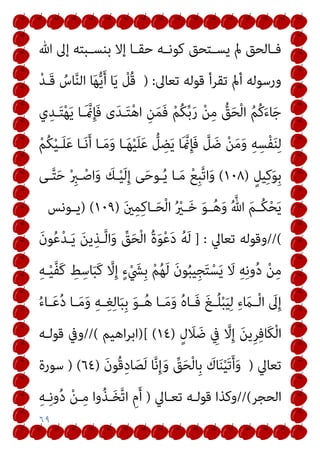 فـالحق لم يسـتحق كونـه حقـا إلا بنسـبته إلى الله
ورسوله ألم تقرأ قوله تعالى: ( قُلْ يَا أَيُّهَا النَّاسُ قَـدْ
جَاءَكُمُ الْحَقُّ مِنْ رَبِّكُمْ فَمَنِ اهْتَدَى فَإِنَّمَا يَهْتَـدِي
لِنَفْسِهِ وَمَنْ ضَلَّ فَإِنَّمَا يَضِلُّ عَلَيْهَـا وَمَـا أَنَـا عَلَـيْكُمْ
بِوَكِيلٍ (١٠٨) وَاتَّبِعْ مَـا يُـوحَى إِلَيْـكَ وَاصْـبِرْ حَتَّـى
يَحْكُـمَ اللهُ وَهُـوَ خَـيْرُ الْحَـاكِمِينَ (١٠٩) (يـونس
//(وقوله تعالي : [ لَهُ دَعْوَةُ الْحَقِّ وَالَّـذِينَ يَـدْعُونَ
مِنْ دُونِهِ لَا يَسْتَجِيبُونَ لَهُمْ بِشَيْءٍ إِلَّا كَبَاسِطِ كَفَّيْـهِ
إِلَى الْمَـاءِ لِيَبْلُـغَ فَـاهُ وَمَـا هُـوَ بِبَالِغِـهِ وَمَـا دُعَـاءُ
الْكَافِرِينَ إِلَّا فِي ضَلَالٍ (١٤) [(ابراهيم )//وفي قولـه
تعالي ( وَأَتَيْنَاكَ بِالْحَقِّ وَإِنَّا لَصَادِقُونَ (٦٤) ( سورة
الحجر)//وكذا قولـه تعـالي ( أَمِ اتَّخَـذُوا مِـنْ دُونِـهِ
٦٩